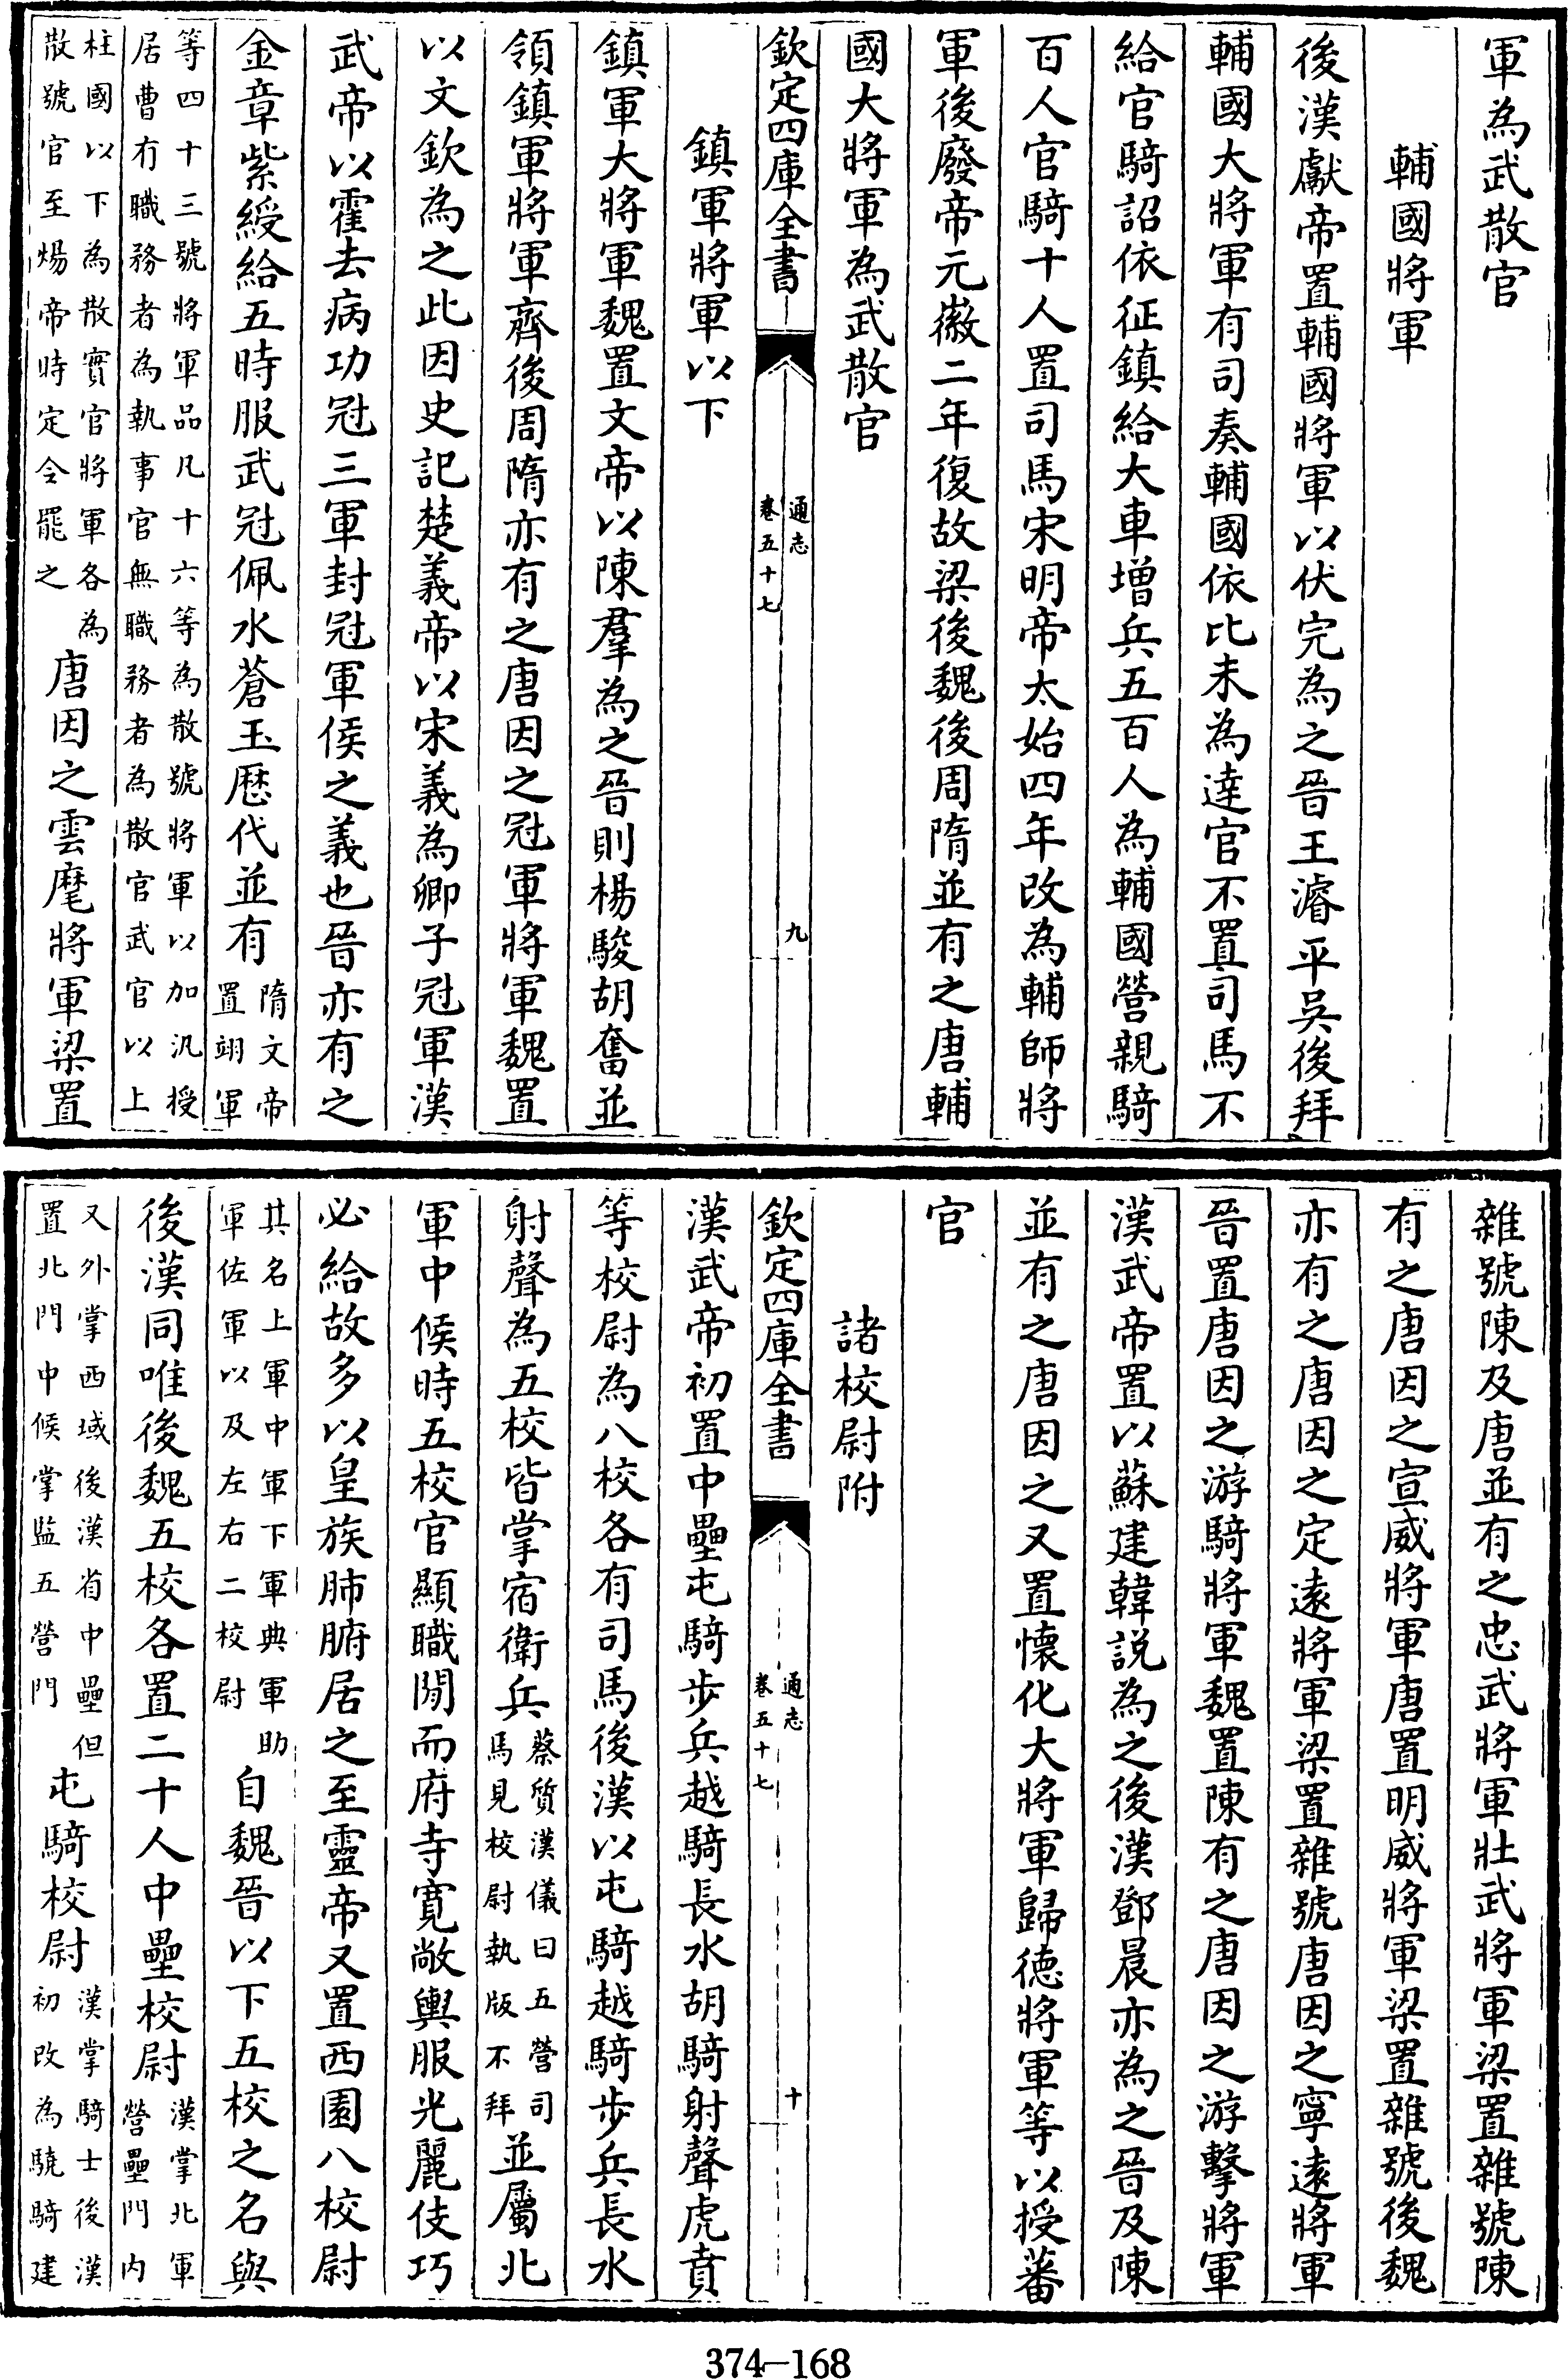 軍為武散官
輔國將軍
後漢獻帝置輔國將軍以伏完為之晉王濬平吳後拜
輔國大將軍有司奏輔國依比未為達官不置司馬不
給官騎詔依征鎮給大車增兵五百人為輔國營親騎
百人官騎十人置司馬宋明帝太始四年改為輔師將
軍後廢帝元徽二年復故梁後魏後周隋並有之唐輔
國大將軍為武散官
欽定四庫全書
通志
卷五十七
九
鎮軍將軍以下
鎮軍大將軍魏置文帝以陳羣為之晉則楊駿胡奮並
領鎮軍將軍齊後周隋亦有之唐因之冠軍將軍魏置
以文欽為之此因史記楚義帝以宋義為卿子冠軍漢
武帝以霍去病功冠三軍封冠軍侯之義也晉亦有之
金章紫綬給五時服武冠佩水蒼玉歷代並有隋文帝置翊軍
等四十三號將軍品凡十六等為散號將軍以加汎授
居曹有職務者為執事官無職務者為散官武官以上
柱國以下為散實官將軍各為
散號官至煬帝時定令罷之
唐因之雲麾將軍梁置
雜號陳及唐並有之忠武將軍壯武將軍梁置雜號陳
有之唐因之宣威將軍唐置明威將軍梁置雜號後魏
亦有之唐因之定遠將軍梁置雜號唐因之寧遠將軍
晉置唐因之游騎將軍魏置陳有之唐因之游擊將軍
漢武帝置以蘇建韓説為之後漢鄧晨亦為之晉及陳
並有之唐因之又置懷化大將軍歸徳將軍等以授蕃
官
諸校尉附
欽定四庫全書
通志
卷五十七
十
漢武帝初置中壘屯騎步兵越騎長水胡騎射聲虎賁
等校尉為八校各有司馬後漢以屯騎越騎步兵長水
射聲為五校皆掌宿衛兵蔡質漢儀曰五營司馬見校尉執版不拜並屬北
軍中候時五校官顯職閒而府寺寛敞輿服光麗伎巧
必給故多以皇族肺腑居之至靈帝又置西園八校尉
其名上軍中軍下軍典軍助
軍佐軍以及左右二校尉
自魏晉以下五校之名與
後漢同唯後魏五校各置二十人中壘校尉漢掌北軍營壘門内
又外掌西域後漢省中壘但
置北門中候掌監五營門
屯騎校尉漢掌騎士後漢初改為驍騎建
374-168